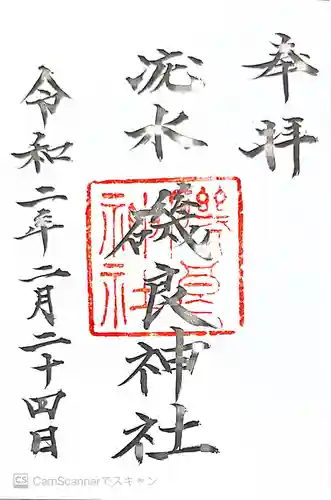 奉拝
疣水
磯良神社
令和二年二月二十四日
磯良
神社
CS CamScannerでスキャン